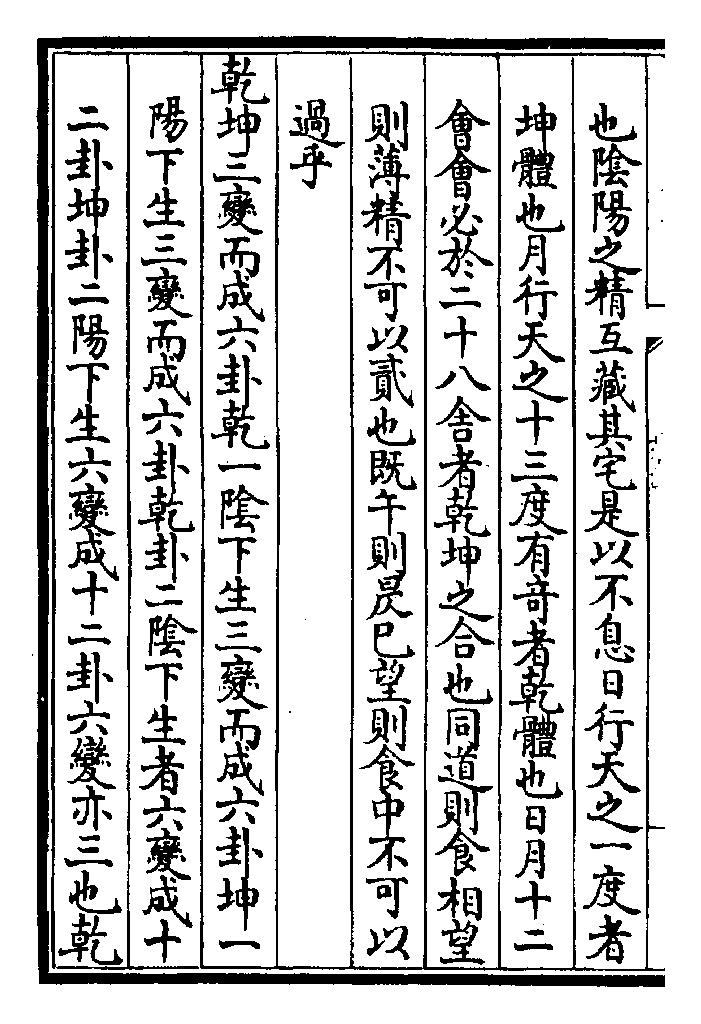 也隂陽之精互藏其宅是以不息日行天之一度者
坤體也月行天之十三度有竒者乾體也日月十二
會會必於二十八舎者乾坤之合也同道則食相望
則薄精不可以貳也既午則昃巳望則食中不可以
過乎
乾坤三變而成六卦乾一隂下生三變而成六卦坤一
陽下生三變而成六卦乾卦二隂下生者六變成十
二卦坤卦二陽下生六變成十二卦六變亦三也乾